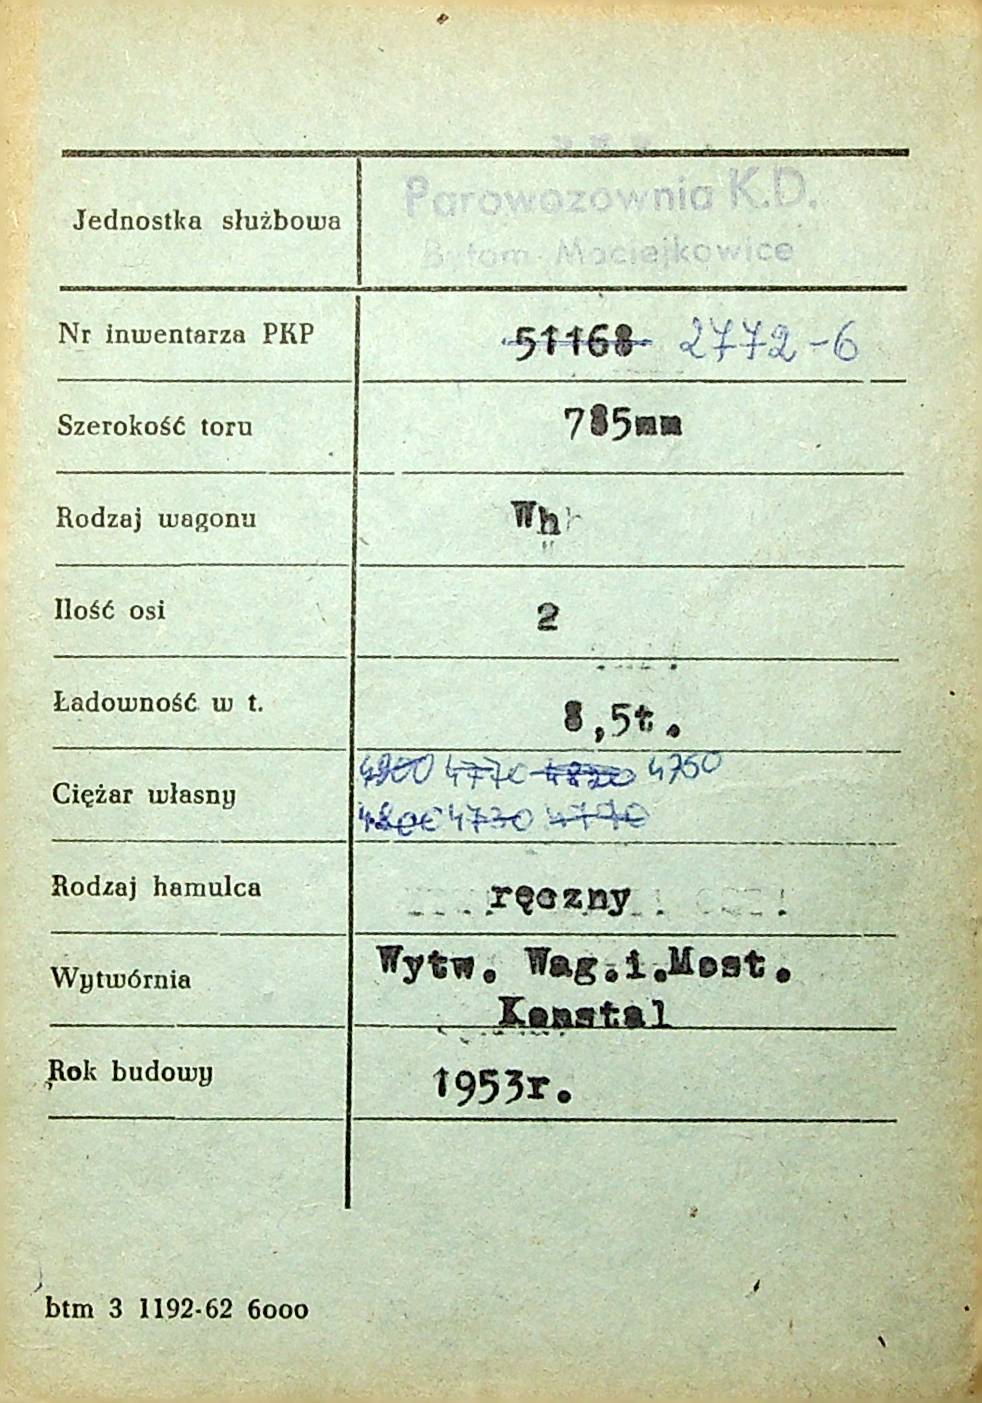 Jednostka służbowa
Parowozownia K.D.
Bytom Maciejkowice
Nr inwentarza PKP 51168 2772-6
Szerokość toru 785mm
Rodzaj wagonu Wh
Ilość osi 2
Ładowność w t. 8,5t.
4900 4770 4820 4760
Ciężar własny
4800 4730 4770
Rodzaj hamulca ręczny
Wytw. Wag.i.Most.
Wytwórnia
Konstal
Rok budowy 1953r.
btm 3 1192-62 6000